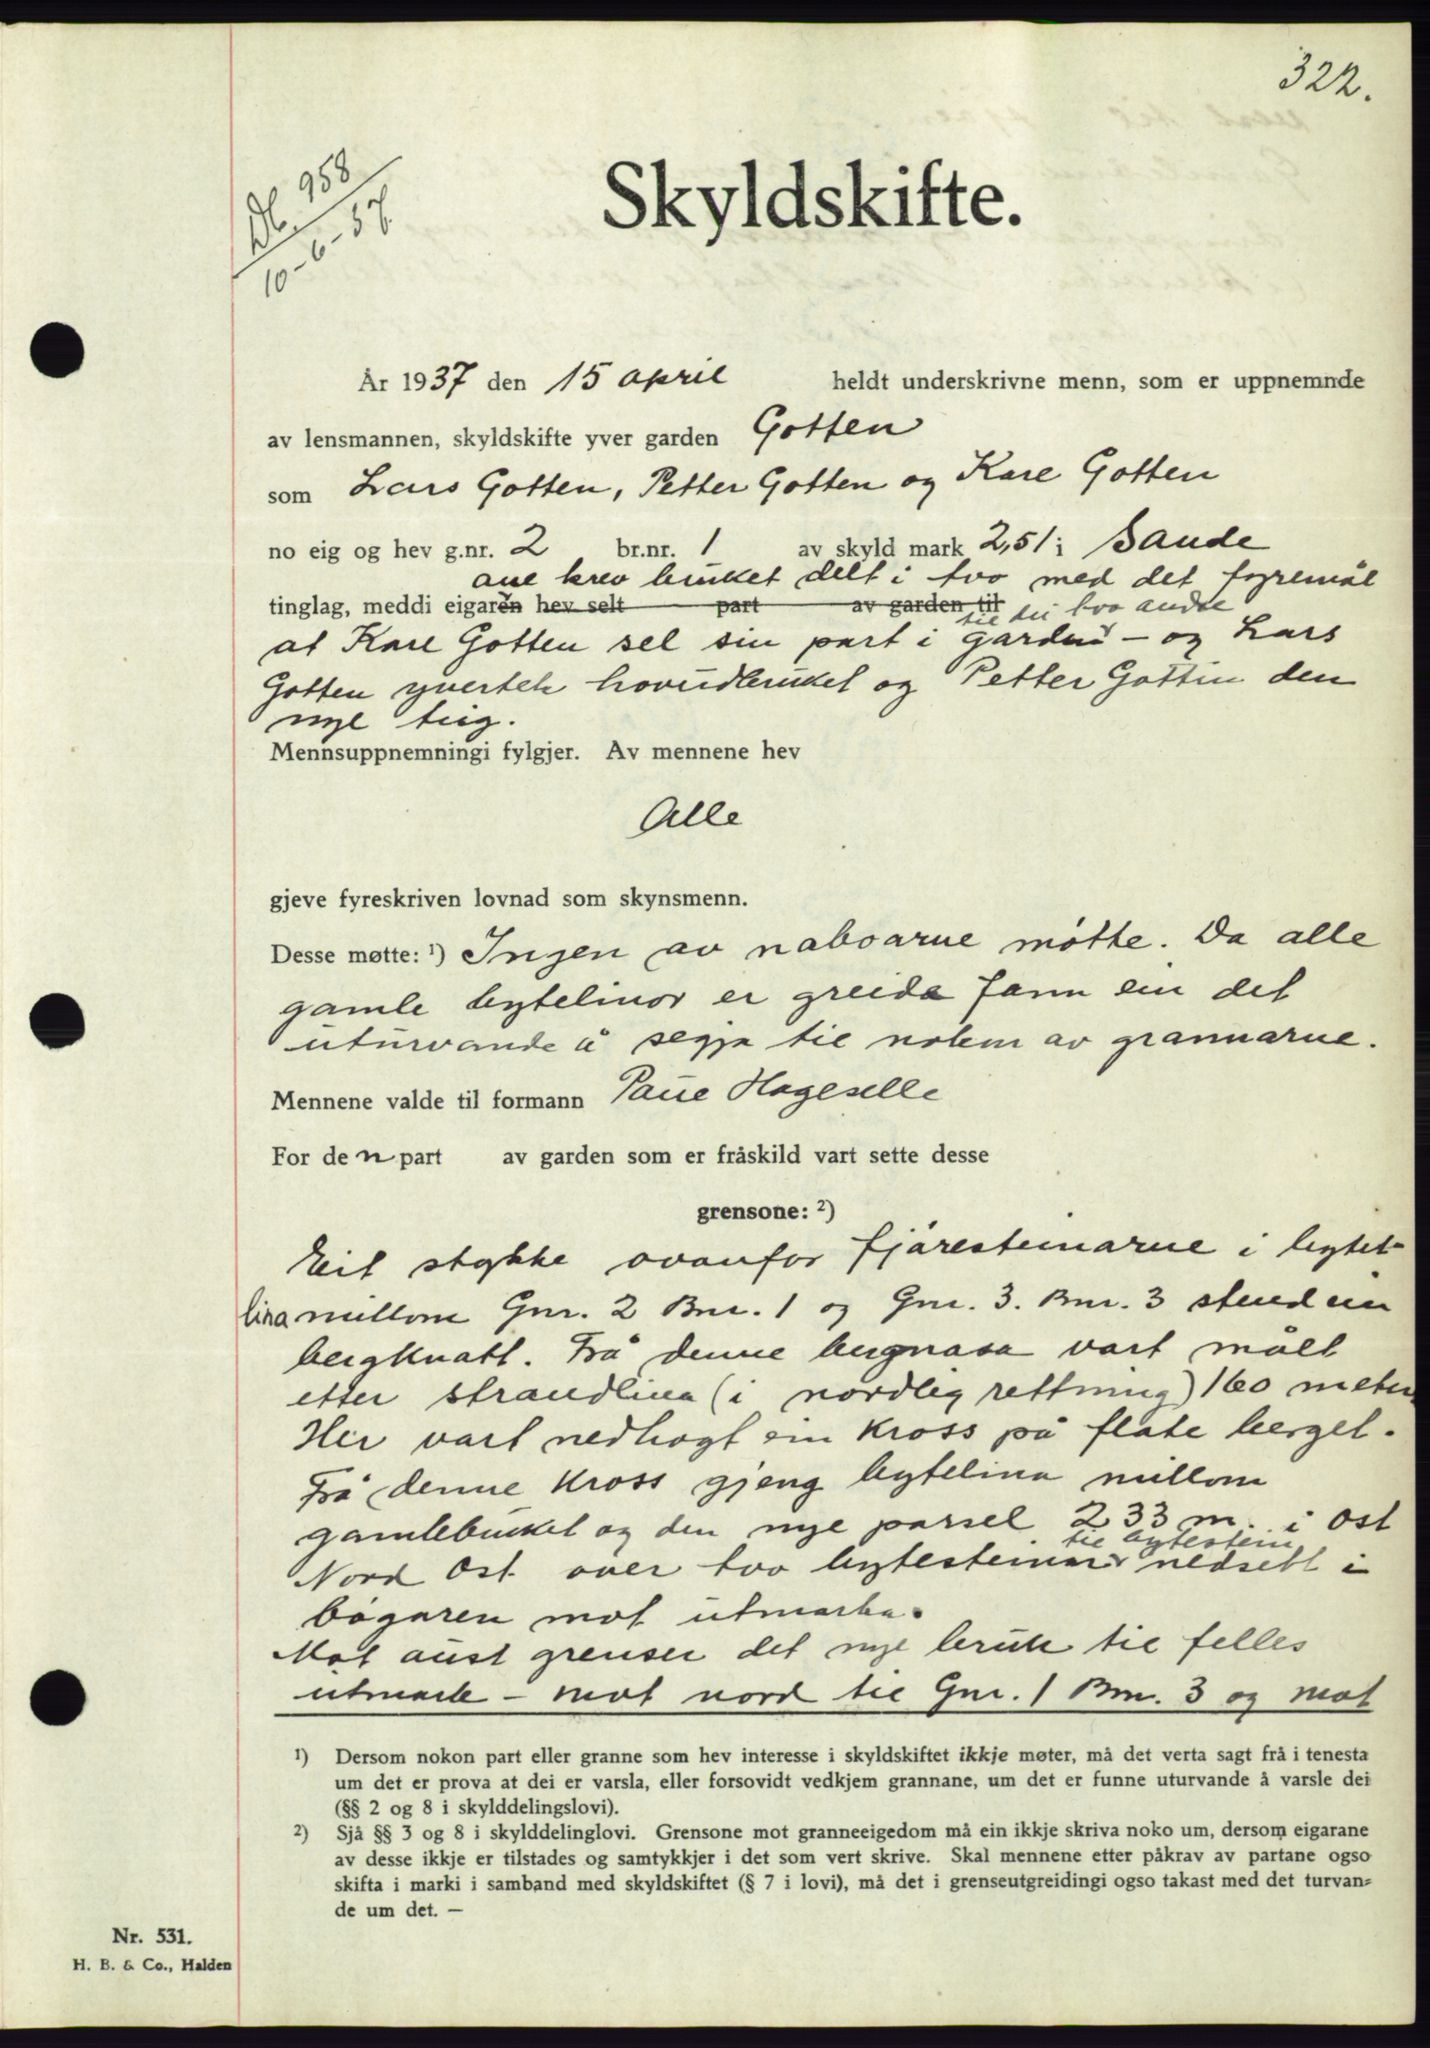 322.
Db. 958
10-6-37.
Skyldskifte.
År 1937 den 15 april heldt underskrivne menn, som er uppnemnde
av lensmannen, skyldskifte yver garden Gotten
som Lars Gotten, Petter Gotten og Kare Gotten
no eig og hev g.nr. 2 br.nr. 1 av skyld mark 2,51 i Sande
ane krev bruket delt i tvo med det fyremål
tinglag, meddi eigaren hev selt part av garden til
til dei tvo andre
at Kare Gotten sel sin part i garden – og Lars
Gotten yvertek hovudbruket og Petter Gotten den
nye teig.
Mennsuppnemningi fylgjer. Av mennene hev
Alle
gjeve fyreskriven lovnad som skynsmenn.
Desse møtte: ¹) Ingen av naboarne møtte. Da alle
gamle bytelinor er greide fann ein det
uturvande å segja til nokon av grannarne.
Mennene valde til formann Paue Hageselle
For den part av garden som er fråskild vart sette desse
grensone: ²)
Eit stykke ovanfor fjøresteinarne i bytet-
lina millom Gnr. 2 Bnr. 1 og Gnr. 3. Bnr. 3 stend ein
bergknatt. Frå denne bergnasa vart målt
etter strandlina (i nordlig rettning) 160 meter
Her vart nedhogt ein kross på flate berget.
Frå denne kross gjeng bytelina millom
gamlebruket og den nye parsel 233 m. i ost
til bytestein
Nord Ost over tvo bytesteinar nedsett i
bøgaren mot utmarka.
Mot aust grenser det nye bruk til felles
utmark – mot nord til Gnr. 1 Bnr. 3 og mot
¹) Dersom nokon part eller granne som hev interesse i skyldskiftet ikkje møter, må det verta sagt frå i tenesta
um det er prova at dei er varsla, eller forsovidt vedkjem grannane, um det er funne uturvande å varsle dei
(§§ 2 og 8 i skylddelingslovi).
²) Sjå §§ 3 og 8 i skylddelinglovi. Grensone mot granneeigedom må ein ikkje skriva noko um, dersom eigarane
av desse ikkje er tilstades og samtykkjer i det som vert skrive. Skal mennene etter påkrav av partane ogso
skifta i marki i samband med skyldskiftet (§ 7 i lovi), må det i grenseutgreidingi ogso takast med det turvan=
de um det. —
Nr. 531.
H. B. & Co., Halden